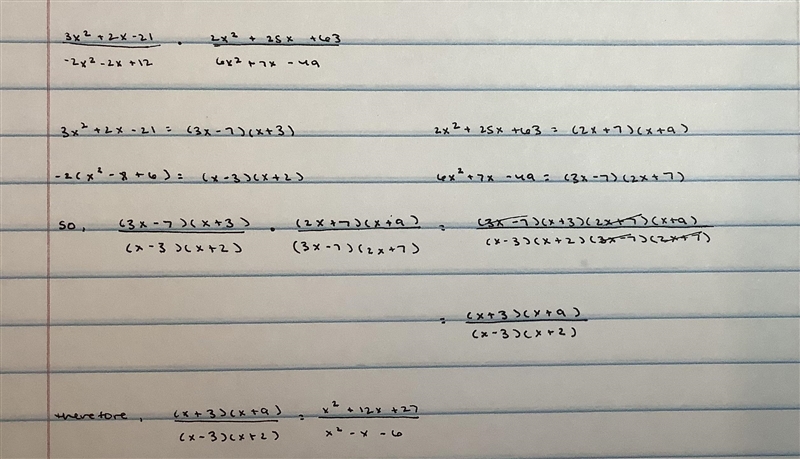 (3x² + 2x - 21)/(-2x² - 2x + 12) · (2x² + 25x + 63)/(6x² + 7x - 49)
3x² + 2x - 21 = (3x - 7)(x + 3)    2x² + 25x + 63 = (2x + 7)(x + 9)
-2(x² - 8 + 6) = (x - 3)(x + 2)    6x² + 7x - 49 = (3x - 7)(2x + 7)
so, ((3x - 7)(x + 3))/((x - 3)(x + 2)) · ((2x + 7)(x + 9))/((3x - 7)(2x + 7)) = ((3x - 7)(x + 3)(2x + 7)(x + 9))/((x - 3)(x + 2)(3x - 7)(2x + 7))
= ((x + 3)(x + 9))/((x - 3)(x + 2))
therefore, ((x + 3)(x + 9))/((x - 3)(x + 2)) = (x² + 12x + 27)/(x² - x - 6)